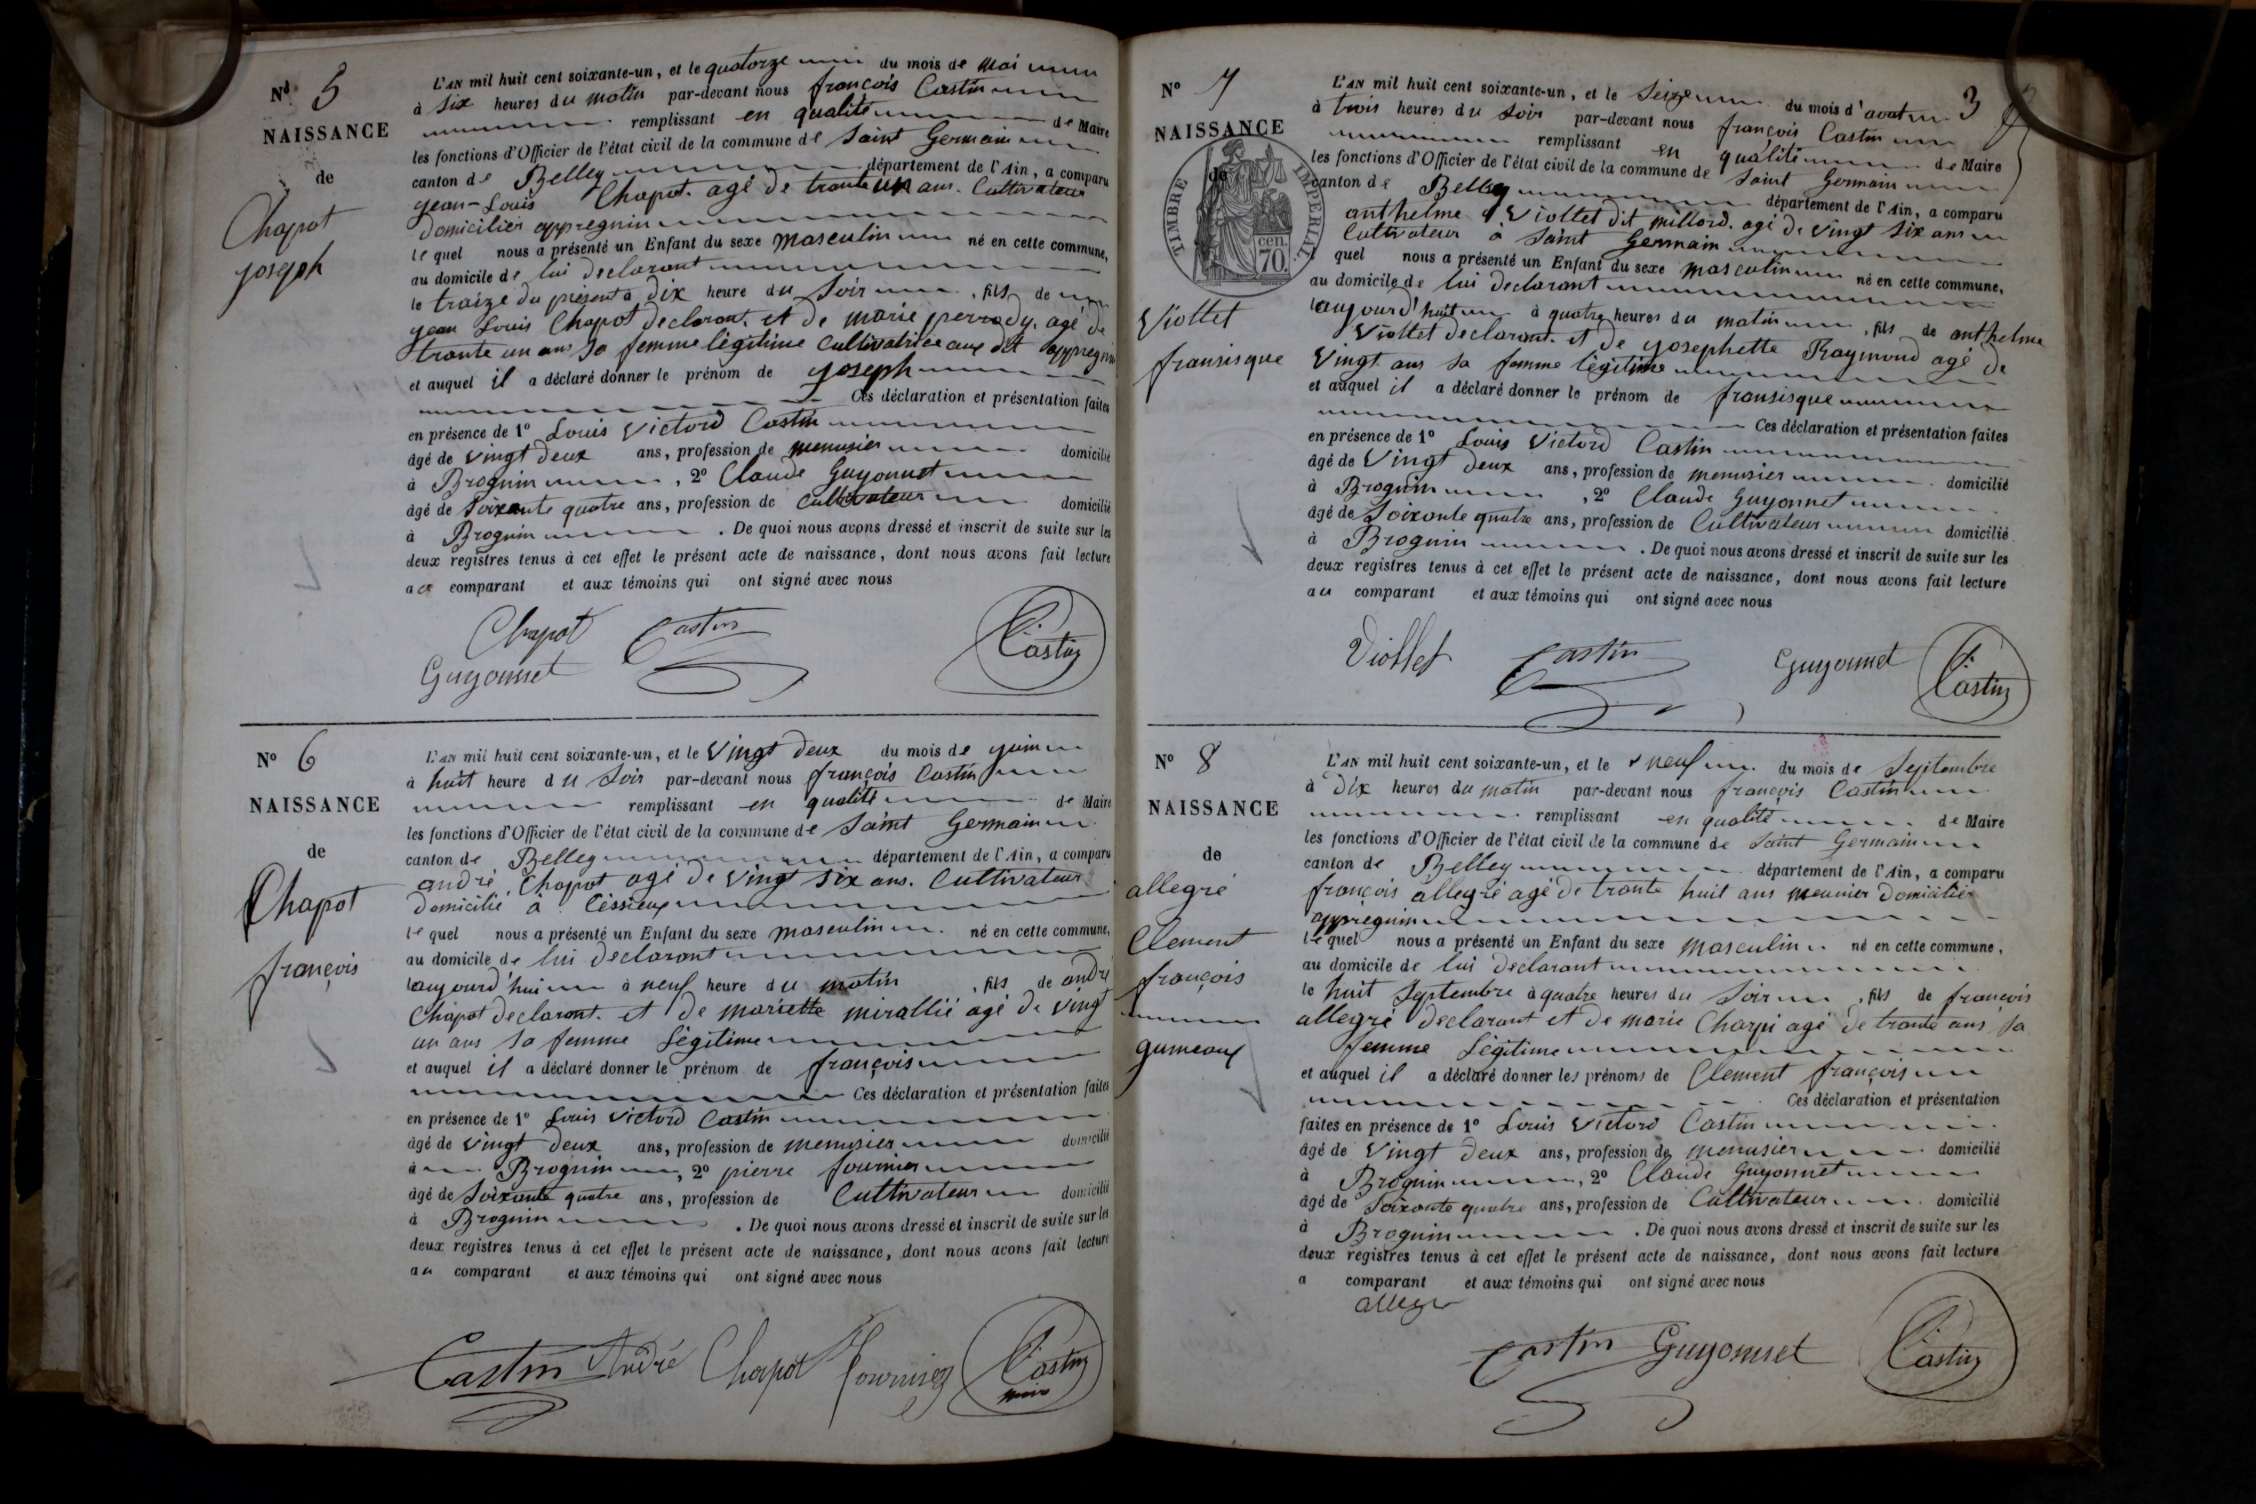 Nº 5
NAISSANCE
de
Chapot
joseph
L'AN mil huit cent soixante-un, et le quatorze du mois de Mai
à six heures du matin par-devant nous françois Castin
remplissant en qualité de Maire
les fonctions d'Officier de l'état civil de la commune de Saint Germain
canton de Belley département de l'Ain, a comparu
jean-Louis Chapot. agé de trante un ans. Cultivateur
domicilier appregnin
lequel nous a présenté un Enfant du sexe masculin né en cette commune,
au domicile de lui declarant
le traize du présent à dix heure du Soir, fils de
jean Louis Chapot declarant. et de marie perrody. agé de
trante un ans sa femme légitime Cultivatrice aux dit appregnin
et auquel il a déclaré donner le prénom de joseph
Ces déclaration et présentation faites
en présence de 1º Louis Victord Castin
âgé de vingt deux ans, profession de menusier domicilié
à Brognin, 2º Claude Guyonnet
âgé de Soixante quatre ans, profession de Cultivateur domicilié
à Brognin. De quoi nous avons dressé et inscrit de suite sur les
deux registres tenus à cet effet le présent acte de naissance, dont nous avons fait lecture
au comparant et aux témoins qui ont signé avec nous
Chapot Castin
Guyonnet
Castin
Nº 6
NAISSANCE
de
Chapot
françois
L'AN mil huit cent soixante-un, et le Vingt deux du mois de juin
à huit heure du Soir par-devant nous françois Castin
remplissant en qualité de Maire
les fonctions d'Officier de l'état civil de la commune de Saint Germain
canton de Belley département de l'Ain, a comparu
andré Chapot agé de vingt six ans. Cultivateur
domicilié à Cessieux
lequel nous a présenté un Enfant du sexe masculin né en cette commune,
au domicile de lui declarant
aujourd'hui à neuf heure du matin, fils de andré
Chapot declarant. et de mariette mirallié agé de vingt
un ans sa femme Légitime
et auquel il a déclaré donner le prénom de françois
Ces déclaration et présentation faites
en présence de 1º Louis Victord Castin
âgé de vingt deux ans, profession de menusier domicilié
à Brognin, 2º pierre fournier
âgé de Soixante quatre ans, profession de Cultivateur domicilié
à Brognin. De quoi nous avons dressé et inscrit de suite sur les
deux registres tenus à cet effet le présent acte de naissance, dont nous avons fait lecture
au comparant et aux témoins qui ont signé avec nous
Castin André Chapot Fournier Castin
maire
3
Nº 7
NAISSANCE
de
TIMBRE IMPERIAL
70 cen.
Viollet
fransisque
L'AN mil huit cent soixante-un, et le Seize du mois d'avout
à trois heures du Soir par-devant nous françois Castin
remplissant en qualité de Maire
les fonctions d'Officier de l'état civil de la commune de Saint Germain
canton de Belley département de l'Ain, a comparu
anthelme Viollet dit millord. agé de vingt six ans
Cultivateur à Saint Germain
quel nous a présenté un Enfant du sexe masculin né en cette commune,
au domicile de lui declarant
aujourd'huit à quatre heures du matin, fils de anthelme
Viollet declarant. et de josephette Raymond agé de
Vingt ans sa femme légitime
et auquel il a déclaré donner le prénom de fransisque
Ces déclaration et présentation faites
en présence de 1º Louis Victord Castin
âgé de Vingt deux ans, profession de menusier domicilié
à Brognin, 2º Claude Guyonnet
âgé de Soixante quatre ans, profession de Cultivateur domicilié
à Brognin. De quoi nous avons dressé et inscrit de suite sur les
deux registres tenus à cet effet le présent acte de naissance, dont nous avons fait lecture
au comparant et aux témoins qui ont signé avec nous
Viollet Castin Guyonnet Castin
Nº 8
NAISSANCE
de
allegré
Clement
françois
gumeaux
L'AN mil huit cent soixante-un, et le neuf du mois de Septembre
à dix heures du matin par-devant nous françois Castin
remplissant en qualité de Maire
les fonctions d'Officier de l'état civil de la commune de Saint Germain
canton de Belley département de l'Ain, a comparu
françois allegré agé de trante huit ans meunier domicilier
appregnin
lequel nous a présenté un Enfant du sexe masculin né en cette commune,
au domicile de lui declarant
le huit Septembre à quatre heures du Soir, fils de françois
allegré declarant et de marie Charpi agé de trante ans sa
femme Légitime
et auquel il a déclaré donner les prénoms de Clement françois
Ces déclaration et présentation
faites en présence de 1º Louis Victord Castin
âgé de Vingt deux ans, profession de menusier domicilié
à Brognin, 2º Claude Guyonnet
âgé de Soixante quatre ans, profession de Cultivateur domicilié
à Brognin. De quoi nous avons dressé et inscrit de suite sur les
deux registres tenus à cet effet le présent acte de naissance, dont nous avons fait lecture
a comparant et aux témoins qui ont signé avec nous
Castin Guyonnet Castin